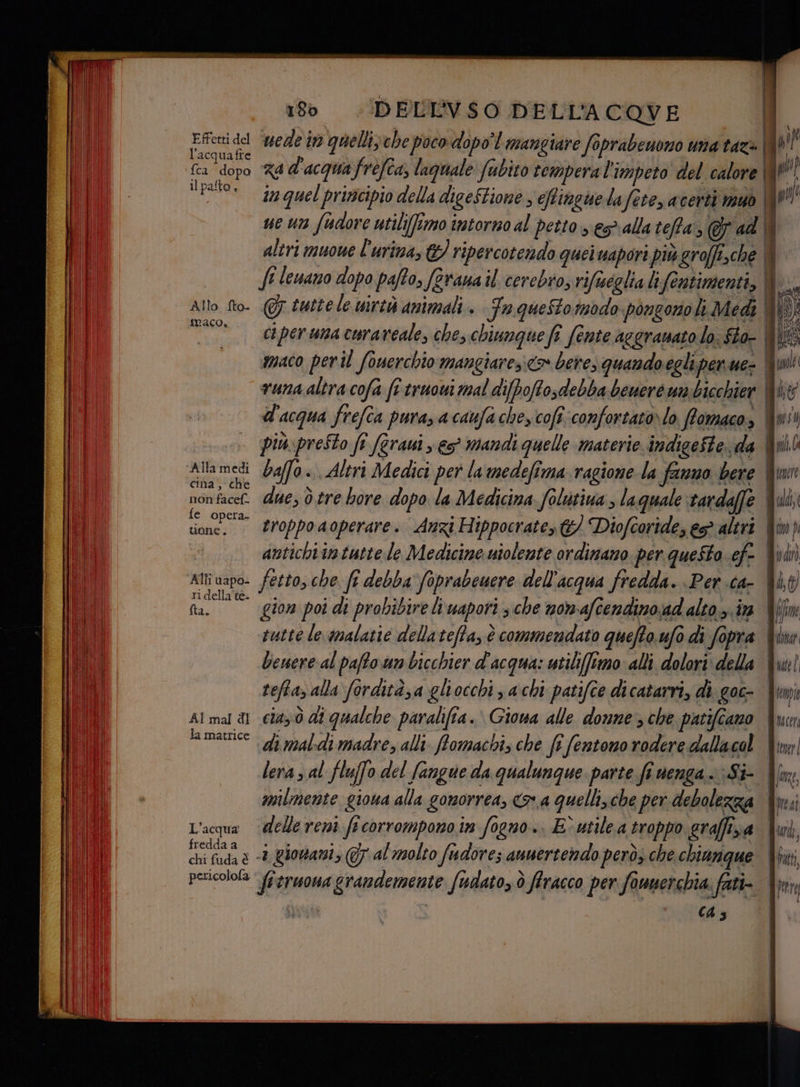 180 DELL'VSO DELL'ACQVE
Effetti del
l'acqua fre
sca dopo
il pasto.
uede in quelli, che poco dopo'l mangiare soprabeuono una taz-
za d'acqua fresca, laquale subito tempera l'impeto del calore
in quel principio della digestione, estingue la sete, a certi muo
ue un sudore utilissimo intorno al petto, & alla testa, & ad
altri muoue l'urina, & ripercotendo quei uapori più grossi, che
si leuano dopo pasto, sgraua il cerebro, risueglia li sentimenti,
Allo sto-
maco,
& tutte le uirtù animali. In questo modo pongono li Medi
ci per una cura reale, che, chiunque si sente aggrauato lo sto-
maco per il souerchio mangiare, & bere, quando egli per ue-
runa altra cosa si truoui mal disposto, debba beuere un bicchier
d'acqua fresca pura, a causa che, cosi confortato lo stomaco,
più presto si sgraui, & mandi quelle materie indigeste da
Alla medi
cina, che
non facess-
se opera-
tione.
basso. Altri Medici per la medesima ragione la fanno bere
due, ò tre hore dopo la Medicina solutiua, laquale tardasse
troppo a operare. Anzi Hippocrate, & Dioscoride, & altri
antichi in tutte le Medicine uiolente ordinano per questo ef-
Alli uapo-
ri della te-
sta.
fetto, che si debba soprabeuere dell'acqua fredda. Per ca-
gion poi di prohibire li uapori, che non ascendino ad alto, in
tutte le malatie della testa, è commendato questo uso di sopra
beuere al pasto un bicchier d'acqua: utilissimo alli dolori della
testa, alla sordità, a gli occhi, a chi patisce di catarri, di goc-
Al mal di
la matrice
cia, ò di qualche paralisia. Gioua alle donne, che patiscano
di mal di madre, alli stomachi, che si sentono rodere dalla col
lera, al flusso del sangue da qualunque parte si uenga. Si-
milmente gioua alla gonorrea, & a quelli, che per debolezza
L'acqua
fredda a
chi suda è
pericolosa
delle reni si corrompono in sogno. E` utile a troppo grassi, a
i giouani, & al molto sudore; auuertendo però, che chiunque
si truoua grandemente sudato, ò stracco per souuerchia fati-
ca,